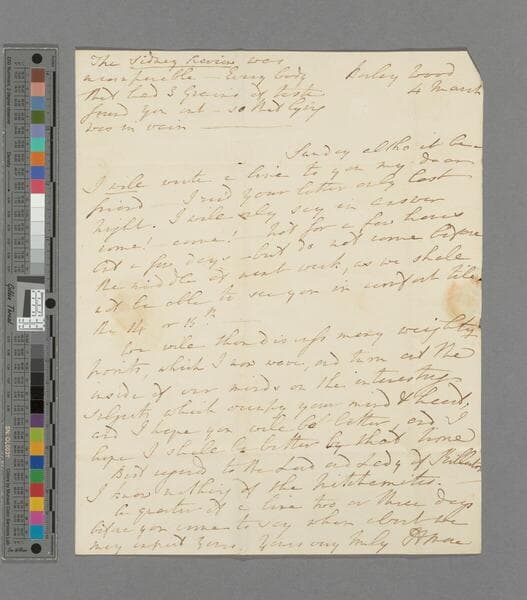 The Sidney Review was
insuperable - Every body
that had 3 Grains of taste
found you out - so that lying
was in vain
Barley Wood
4 March
Sunday altho it be -
I will write a line to you my dear
friend - I rec'd your letter only last
night. I will only say in answer
come! come! Not for a few hours
but a few days - but do not come before
the middle of next week, as we shall
not be able to see you in comfort till
the 14 or 15th
We will then discuss many weighty
points, which I now wave, and turn out the
inside of our minds on the interesting
subjects which occupy your mind & heart,
and I hope you will be better, and I
hope I shall be better by that time
Best regard to the Lord and Lady of
I know nothing of the
A quarter of a line two or three days
before you come to say when about we
may expect you. Yours very truly H More